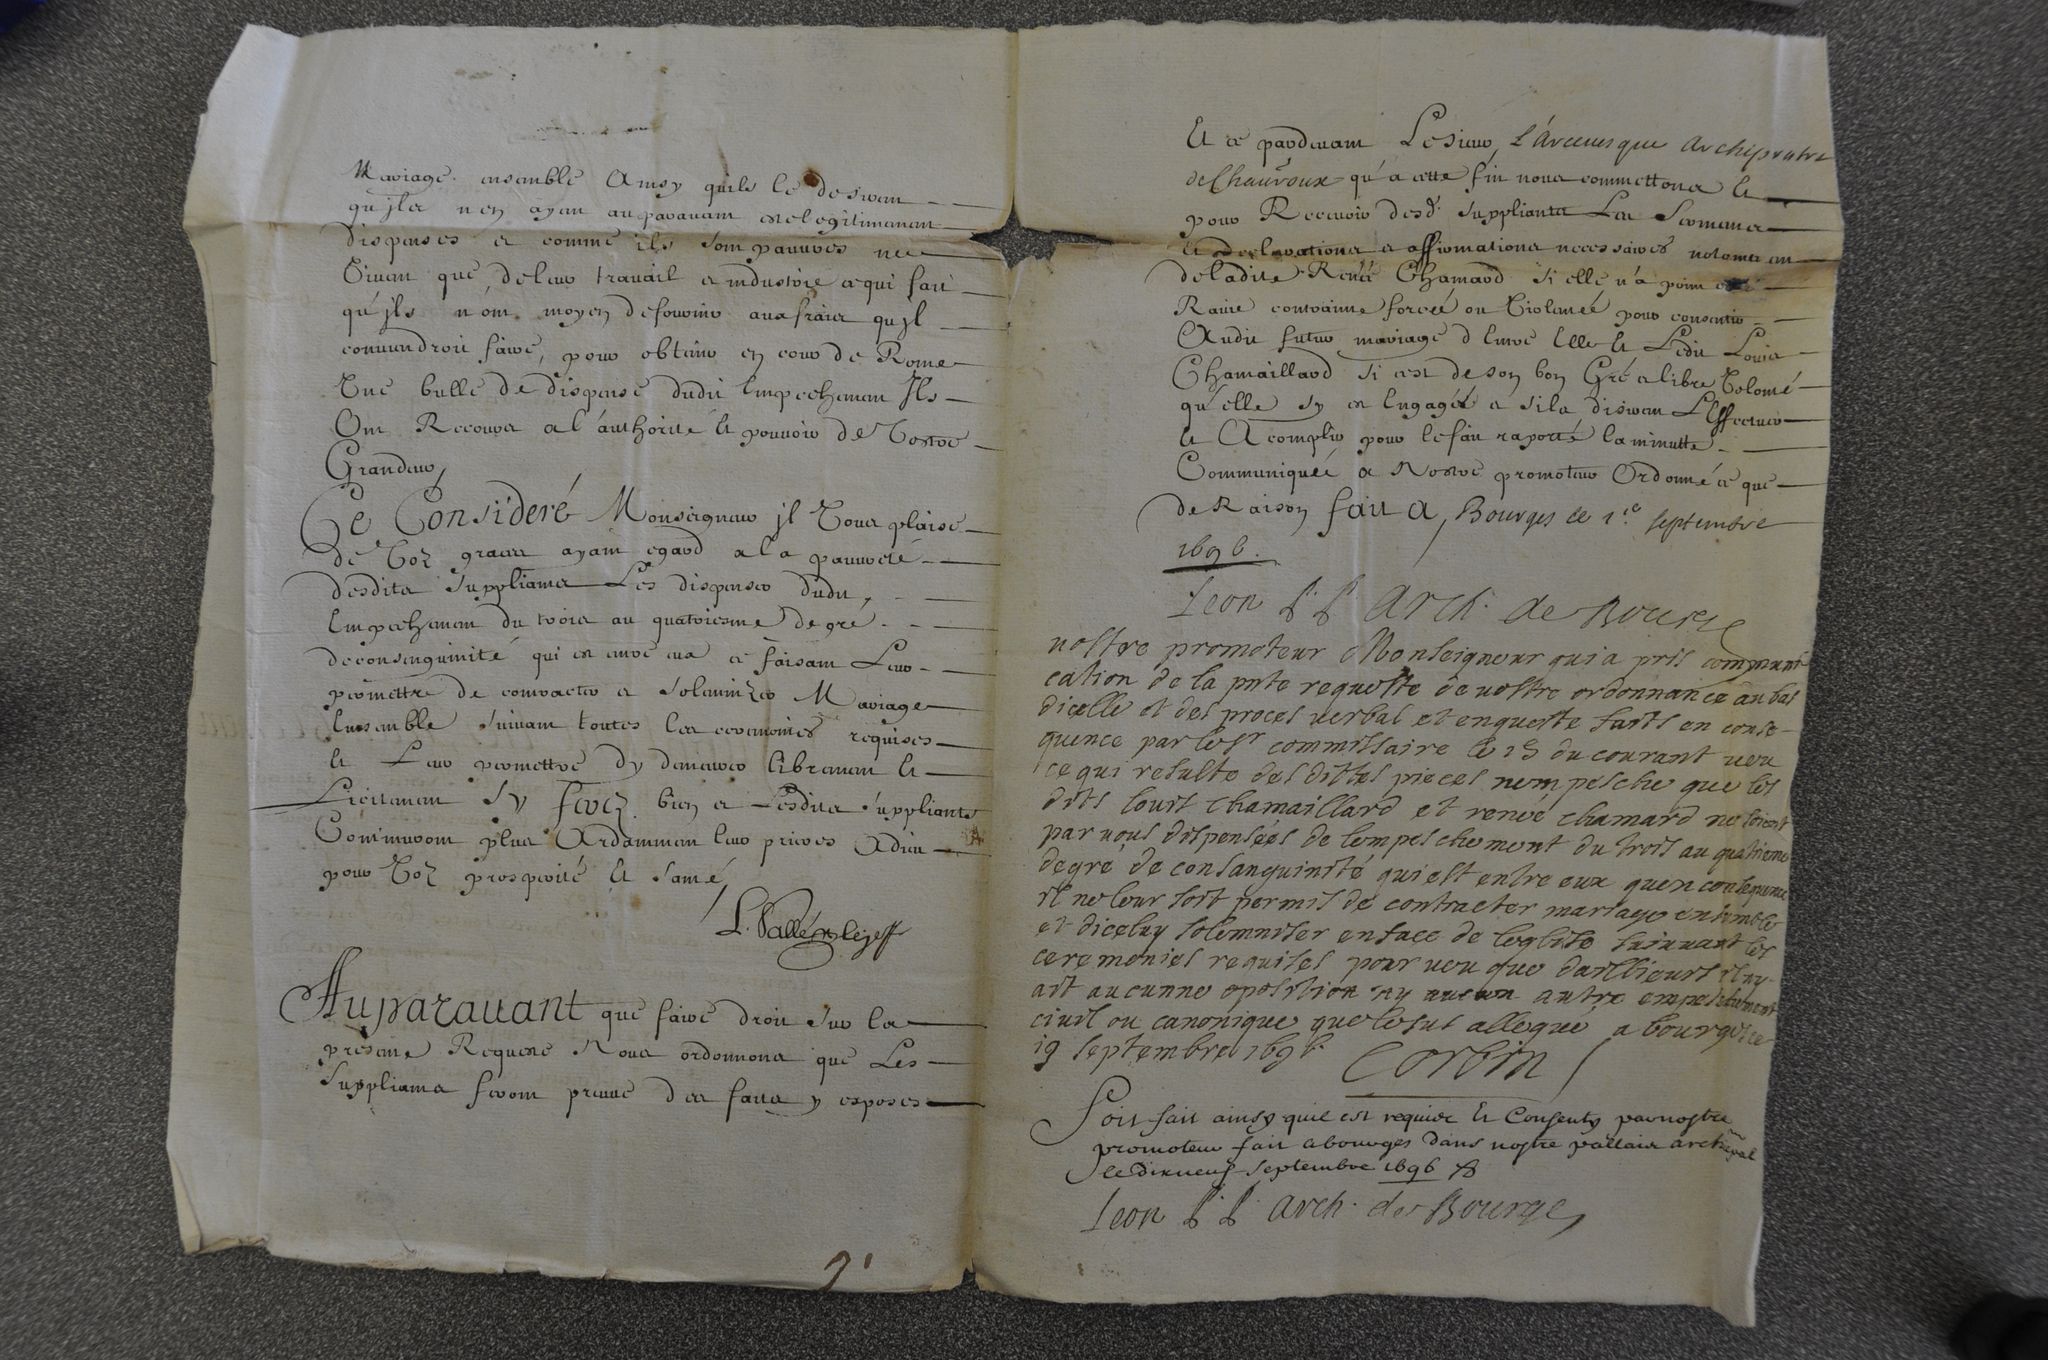 Mariage ensemble Ainsy quils le desirent
qu'jls n'en ayent auparavant este legitimement
dispensés et comme ils sont pauvres ne
Vivent que de leur travail et industrie ce qui fait
qu'jls n'ont moyen de fournir aux fraies qu'jl
conviendroit faire, pour obtenir en cour de Rome
Vne bulle de dispense dudit Empechement Jls
Ont Recours a l'authorité et pouvoir de Vostre
Grandeur,
Ce Consideré Monseigneur jl Vous plaise
de Voz graces ayant egard a la pauvreté
desdits suppliants Les dispenser dudit
Empechement du trois au quatriesme degré
de consenguinité qui est entre eux ce faisant Leur
permettre de contracter et solemnizer Mariage
Ensemble suivant toutes les ceremonies requises
et Leur permettre d'y demeurer librement et
Licitement Sy ferez bien et Lesdits suppliants
Continueront plus Ardamment leur prieres A dieu
pour Voz prosperité et santé
L. Vallée
Auparavant que faire droit sur la
presente Requeste Nous ordonnons que Les
suppliants feront preuve des faits y exposés
9'
Et ce pardevant Le Sieur L'arcevesque Archiprestre
de Chauvroux qu'a cette fin nous commettons et
pour Recevoir desd. suppliants Les Serments
et declarations et affirmations necessaires notament
de ladite Renée Chamard si elle n'a point esté
Ravie contrainte forcée ou Violentée pour consentir
Audit futur mariage d'Entre Elle et Ledit Louis
Chamaillard si c'est de son bon Gré et libre Volonté
qu'elle s'y est Engagée et si la desirent L'Effectuer
et Acomplir pour le fait raporté la minutte
Communiquée a Nostre promoteur Ordonné ce que
de Raison fait A Bourges ce 1.e septembre
1696.
Leon P. P. Arch. de Bourges
vostre promoteur Monseigneur qui a pris communi
cation de la pnte requeste de vostre ordonnance au bas
dicelle et des proces verbal et enqueste faits en conse-
quence par le Sr commissaire le 15 du courant veu
ce qui resulte des dittes pieces nempesche que les
dits louis chamaillard et renée chamard ne soient
par vous dispensées de lempeschement du trois au quatrieme
degre de consanguinité qui est entre eux quen consequence
il ne leur soit permis de contracter mariage ensemble
et diceluy solemniser en face de leglise suivant les
ceremonies requises pourveu que dailleurs il ny
ait aucunne oposition ny aucun autre empeschement
civil ou canonique que le sus allegué a bourges ce
19 septembre 1696.
Corbin
Soit fait ainsy quil est requis Et Consenty par nostre
promoteur fait a bourges dans nostre pallais archepal
le dixneuf septembre 1696
Leon P. P. Arch. de Bourges